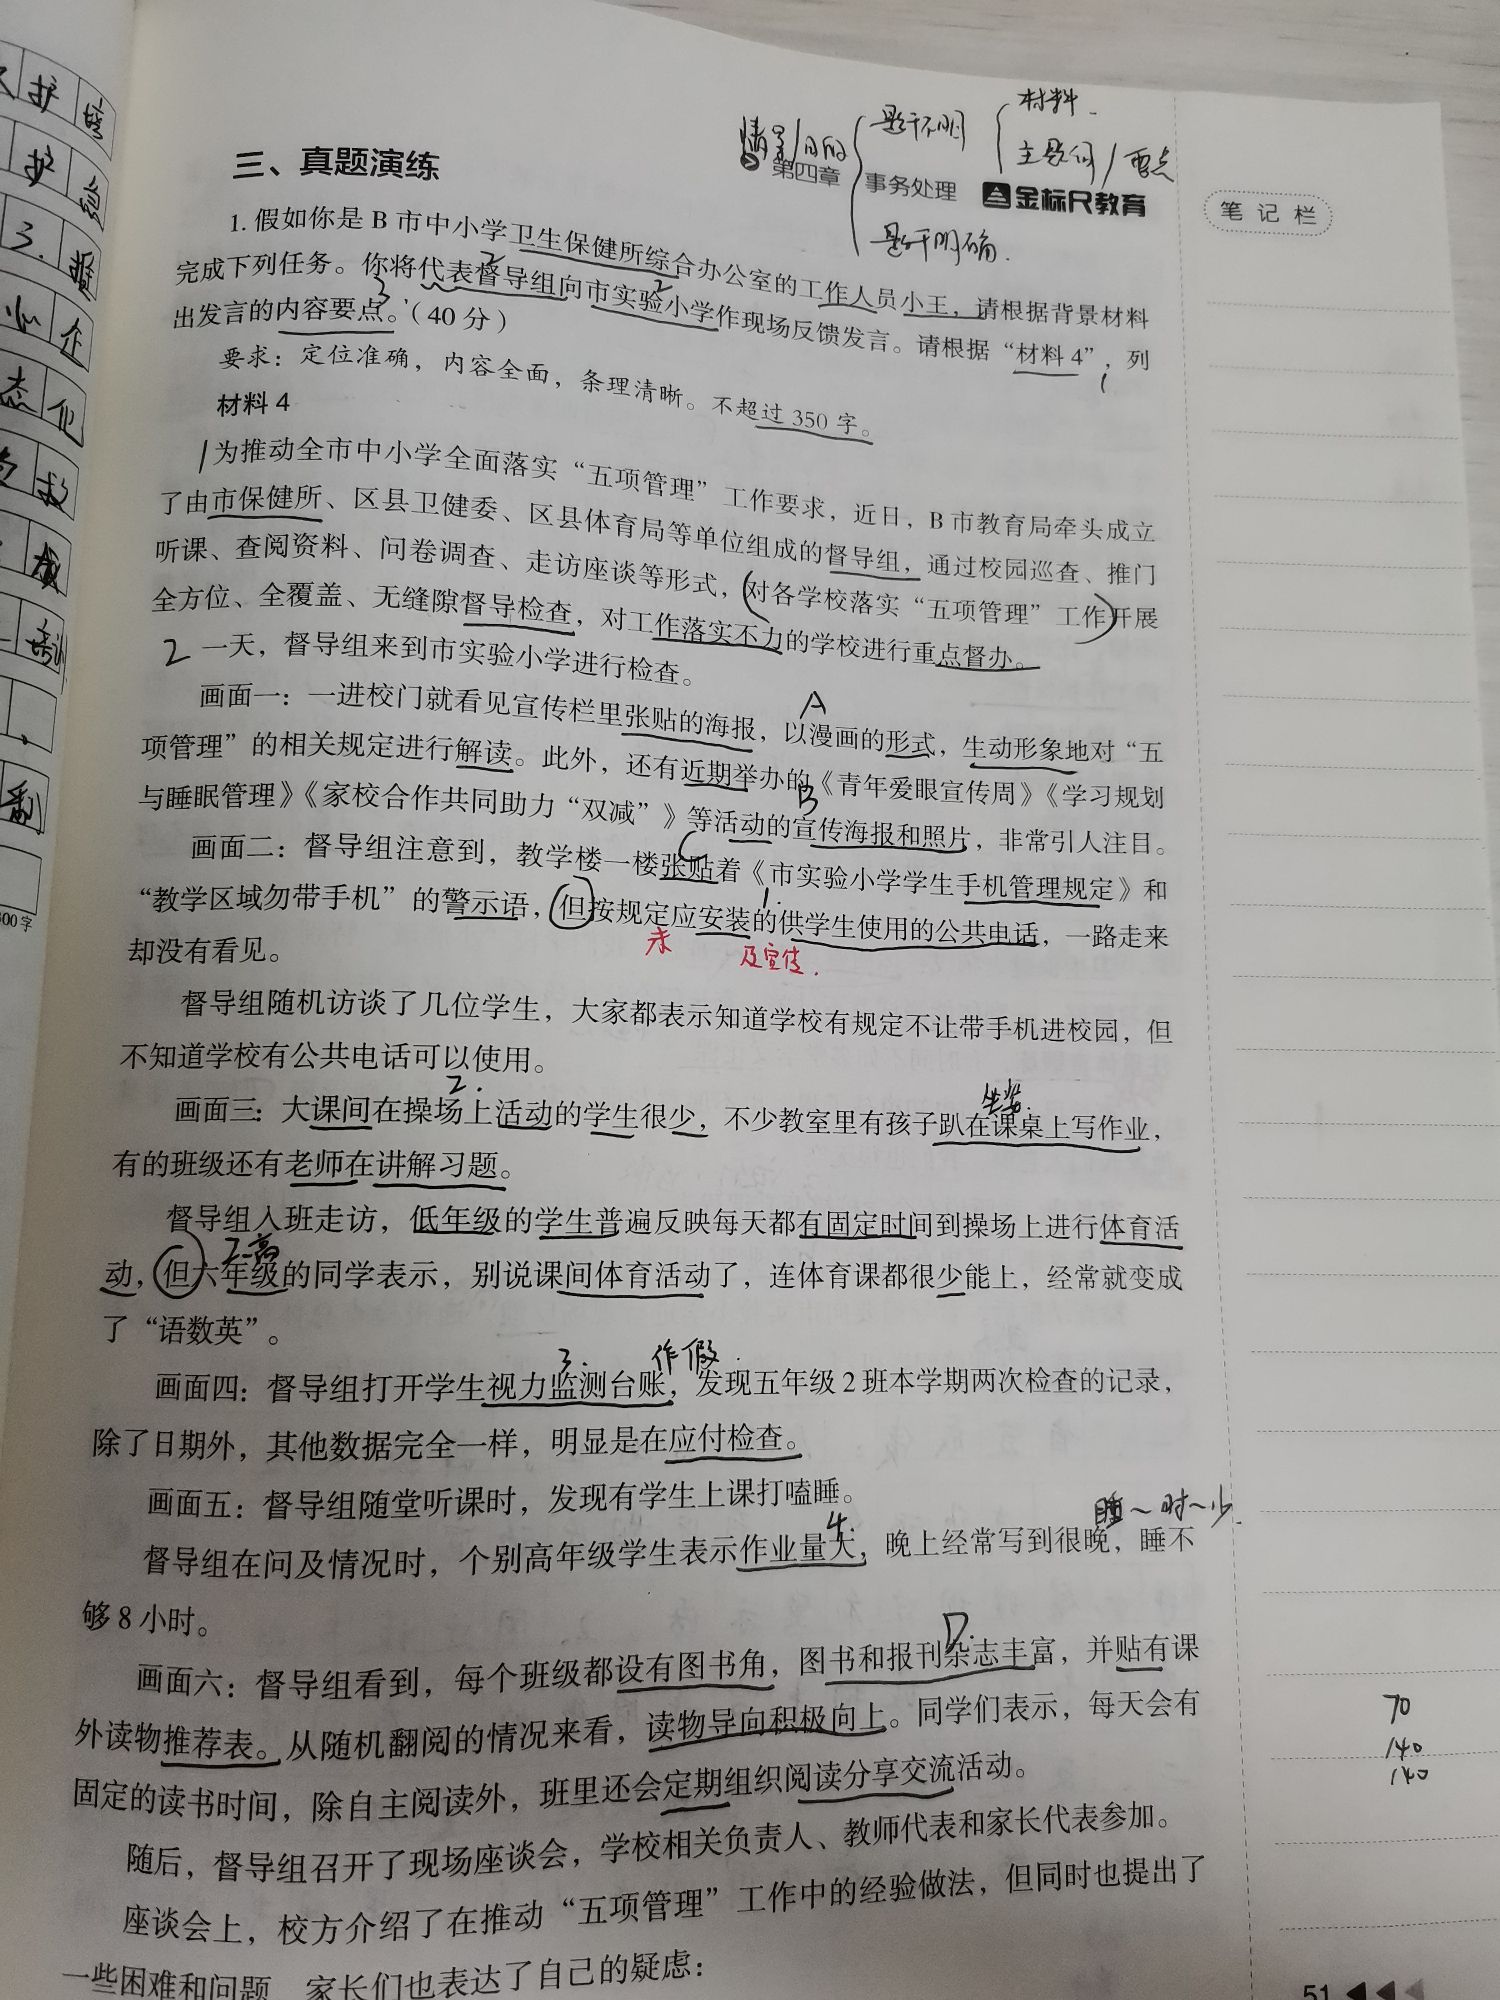 情景/目的
题干不明
材料
主题词/要点
题干明确
三、真题演练
第四章 事务处理 金标尺教育
笔记栏
1.假如你是B市中小学卫生保健所综合办公室的工作人员小王，请根据背景材料
完成下列任务。你将代表督导组向市实验小学作现场反馈发言。请根据“材料4”，列
出发言的内容要点。（40分）
要求：定位准确，内容全面，条理清晰。不超过350字。
材料4
1 为推动全市中小学全面落实“五项管理”工作要求，近日，B市教育局牵头成立
了由市保健所、区县卫健委、区县体育局等单位组成的督导组，通过校园巡查、推门
听课、查阅资料、问卷调查、走访座谈等形式，对各学校落实“五项管理”工作开展
全方位、全覆盖、无缝隙督导检查，对工作落实不力的学校进行重点督办。
2 一天，督导组来到市实验小学进行检查。
A
画面一：一进校门就看见宣传栏里张贴的海报，以漫画的形式，生动形象地对“五
项管理”的相关规定进行解读。此外，还有近期举办的《青年爱眼宣传周》《学习规划
B
与睡眠管理》《家校合作共同助力“双减”》等活动的宣传海报和照片，非常引人注目。
C
画面二：督导组注意到，教学楼一楼张贴着《市实验小学学生手机管理规定》和
1.
“教学区域勿带手机”的警示语，但按规定应安装的供学生使用的公共电话，一路走来
未 及宣传.
却没有看见。
督导组随机访谈了几位学生，大家都表示知道学校有规定不让带手机进校园，但
不知道学校有公共电话可以使用。
2.
画面三：大课间在操场上活动的学生很少，不少教室里有孩子趴在课桌上写作业，
有的班级还有老师在讲解习题。
督导组入班走访，低年级的学生普遍反映每天都有固定时间到操场上进行体育活
动，但六年级的同学表示，别说课间体育活动了，连体育课都很少能上，经常就变成
了“语数英”。
3. 作假.
画面四：督导组打开学生视力监测台账，发现五年级2班本学期两次检查的记录，
除了日期外，其他数据完全一样，明显是在应付检查。
画面五：督导组随堂听课时，发现有学生上课打嗑睡。
4. 睡~时~少.
督导组在问及情况时，个别高年级学生表示作业量大，晚上经常写到很晚，睡不
够8小时。
D.
画面六：督导组看到，每个班级都设有图书角，图书和报刊杂志丰富，并贴有课
外读物推荐表。从随机翻阅的情况来看，读物导向积极向上。同学们表示，每天会有
固定的读书时间，除自主阅读外，班里还会定期组织阅读分享交流活动。
随后，督导组召开了现场座谈会，学校相关负责人、教师代表和家长代表参加。
座谈会上，校方介绍了在推动“五项管理”工作中的经验做法，但同时也提出了
一些困难和问题 家长们也表达了自己的疑虑：
70
140
140
51
300字